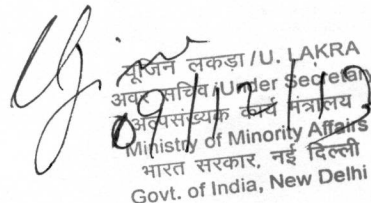 यूजिन लकड़ा / U. LAKRA
अवर सचिव / Under Secretary
अल्पसंख्यक कार्य मंत्रालय
Ministry of Minority Affairs
भारत सरकार, नई दिल्ली
Govt. of India, New Delhi
09/12/13